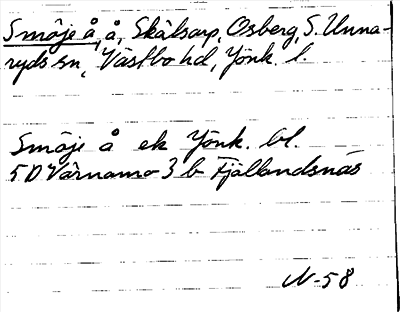 Smöje å, å, Skålsarp, Osberg, S. Unna-
ryds sn, Västbo hd, Jönk. l.
Smöje å ek Jönk. bl.
5D Värnamo 3 b Fjällandsnäs
N-58